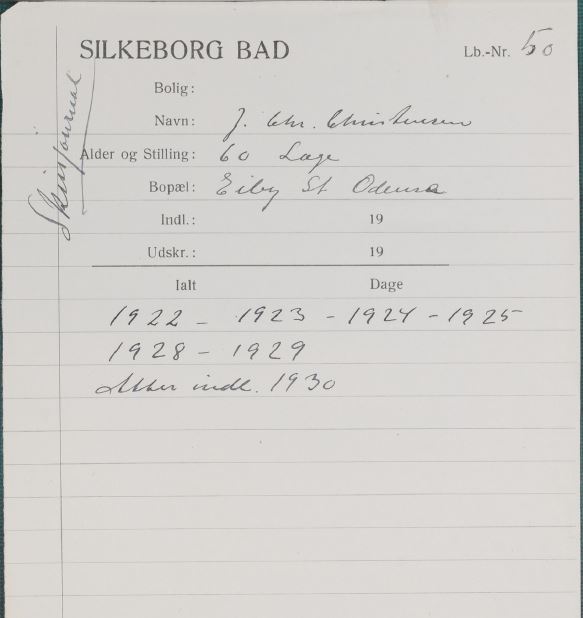 SILKEBORG BAD
Lb.-Nr. 50
Skinjournal
Bolig:
Navn: J. Chr. Christensen
Alder og Stilling: 60 Læge
Bopæl: Eiby St Odense
Indl.: 19
Udskr.: 19
Ialt Dage
1922 - 1923 - 1924 - 1925
1928 - 1929
Atter indl. 1930